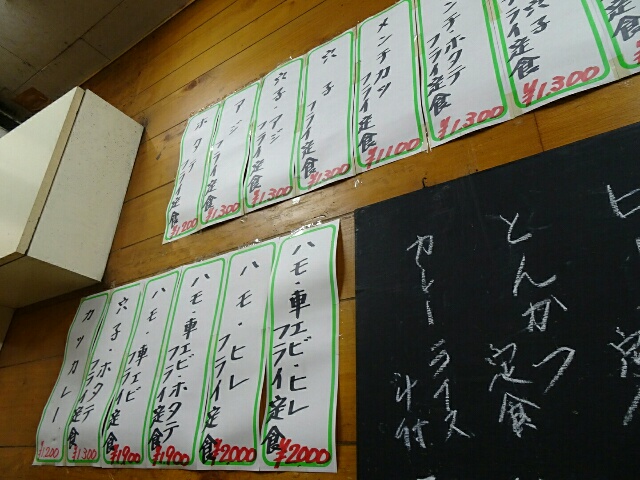 穴子
フライ定食
¥1,300
メンチ・ホタテ
フライ定食
¥1,300
メンチカツ
フライ定食
¥1,100
穴子
フライ定食
¥1,300
穴子・アジ
フライ定食
¥1,300
アジ
フライ定食
¥1,300
ホタテ
フライ定食
¥1,200
ハモ・車エビ・ヒレ
フライ定食
¥2000
ハモ・ヒレ
フライ定食
¥2000
ハモ・車エビ・ホタテ
フライ定食
¥1,900
ハモ・車エビ
フライ
¥1,900
穴子・ホタテ
フライ定食
¥1,300
カツカレー
¥1,200
とんかつ
定食
カレーライス
汁付